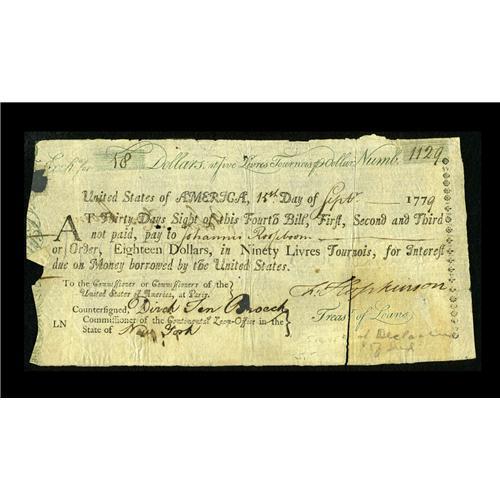 Exch.ᵃ for 18 Dollars, at five Livres Tournois ⅌ Dollar, Numb. 1129
United States of AMERICA, 15th Day of Septr. 1779
AT Thirty Days Sight of this Fourth Bill, First, Second and Third
not paid, pay to Johannis Roseboom
or Order, Eighteen Dollars, in Ninety Livres Tournois, for Interest
due on Money borrowed by the United States.
To the Commissioner or Commissioners of the
United States of America, at Paris.
F. Hopkinson
Treasr. of Loans
Countersigned, Dirck Ten Broeck
Commissioner of the Continental Loan-Office in the
State of New York
LN